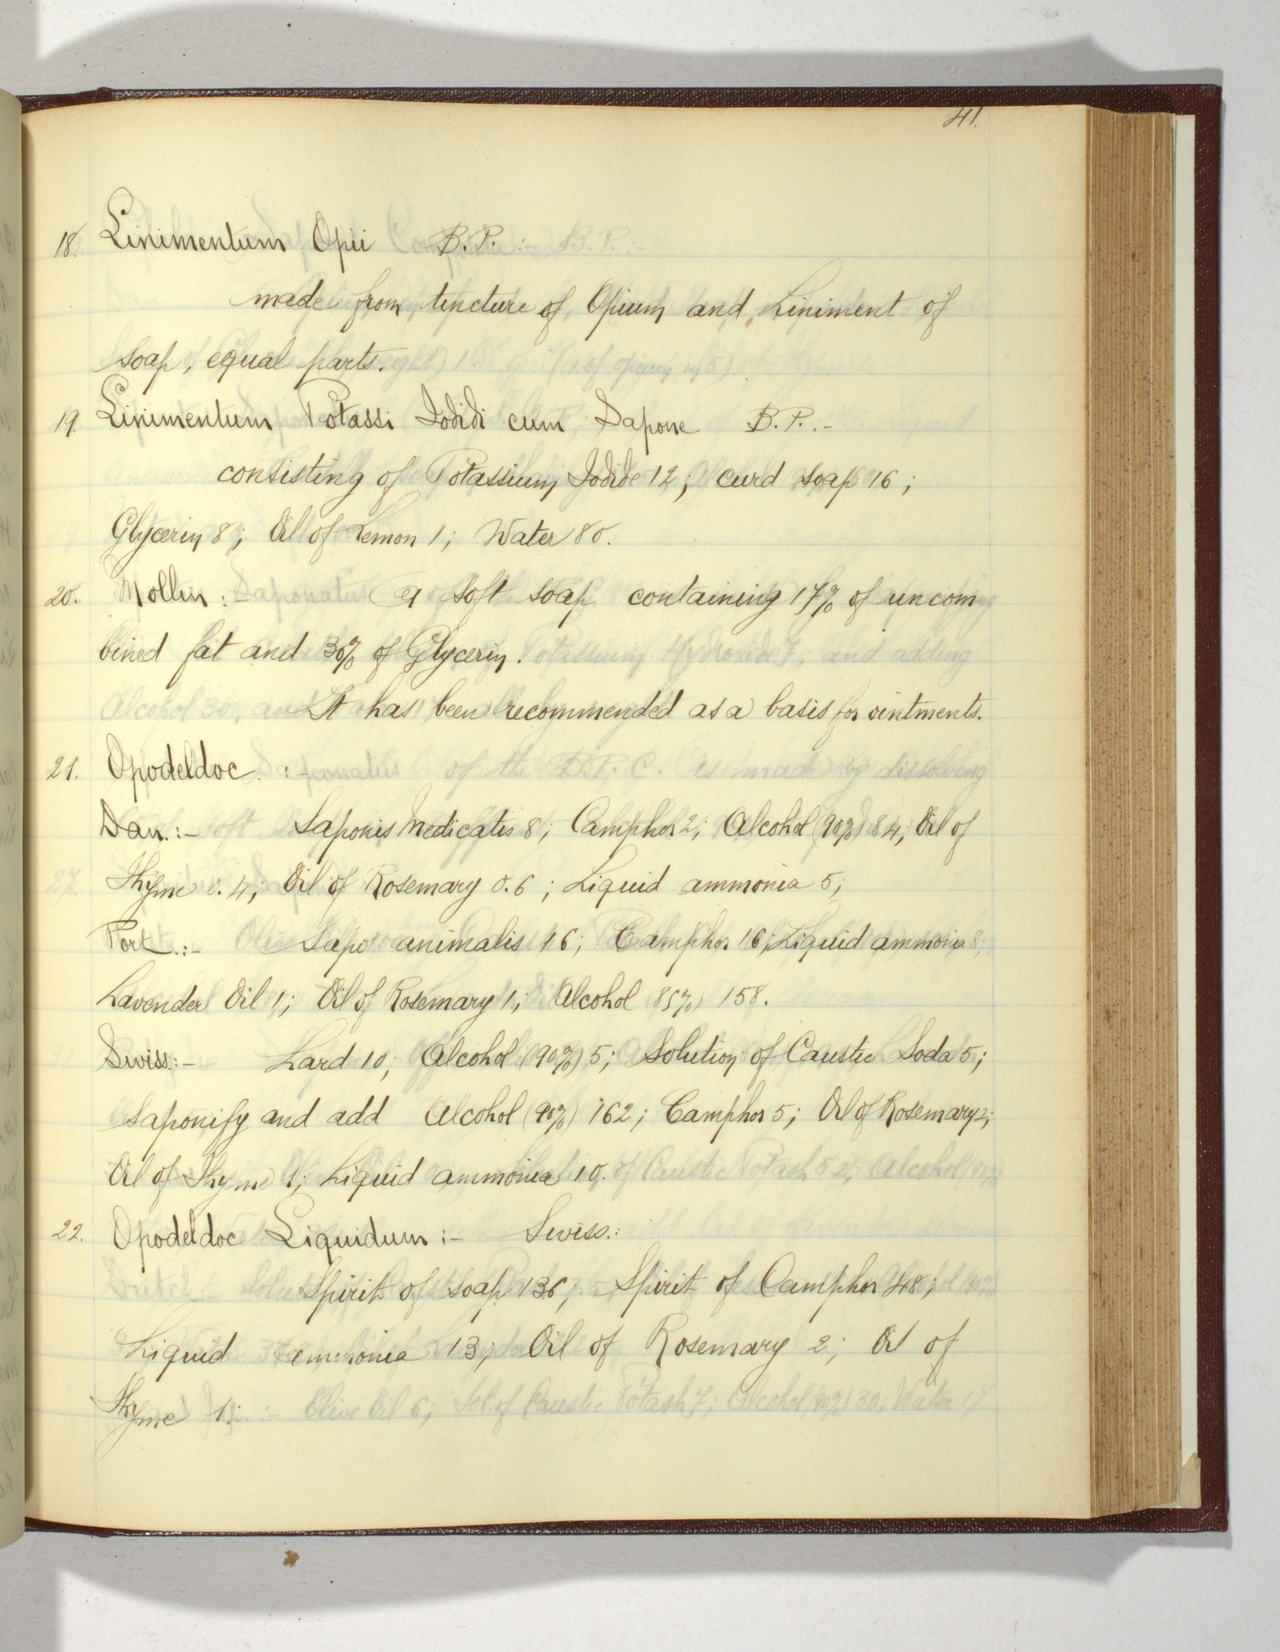 41.
18. Linimentum Opii B.P. :-
made from tincture of Opium and Liniment of
Soap, equal parts.
19. Linimentum Potassi Iodidi cum Sapone B.P. :-
consisting of Potassium Iodide 12; curd soap 16;
Glycerin 8; Oil of Lemon 1; Water 80.
20. Mollin :- A soft soap containing 17% of uncom
bined fat and 30% of Glycerin.
It has been recommended as a basis for ointments.
21. Opodeldoc :-
Dan. :- Saponis Medicatis 8; Camphor 2; Alcohol (90%) 84; Oil of
Thyme 0.4; Oil of Rosemary 0.6; Liquid ammonia 5;
Port. :- Sapo animalis 16; Camphor 16; Liquid ammonia 8;
Lavender Oil 1; Oil of Rosemary 1; Alcohol (85%) 158.
Swiss :- Lard 10; Alcohol (90%) 5; Solution of Caustic Soda 5;
Saponify and add Alcohol (90%) 162; Camphor 5; Oil of Rosemary 2;
Oil of Thyme 1; Liquid ammonia 10.
22. Opodeldoc Liquidum :- Swiss. :
Spirit of soap 136; Spirit of Camphor 48;
Liquid ammonia 13; Oil of Rosemary 2; Oil of
Thyme 1.